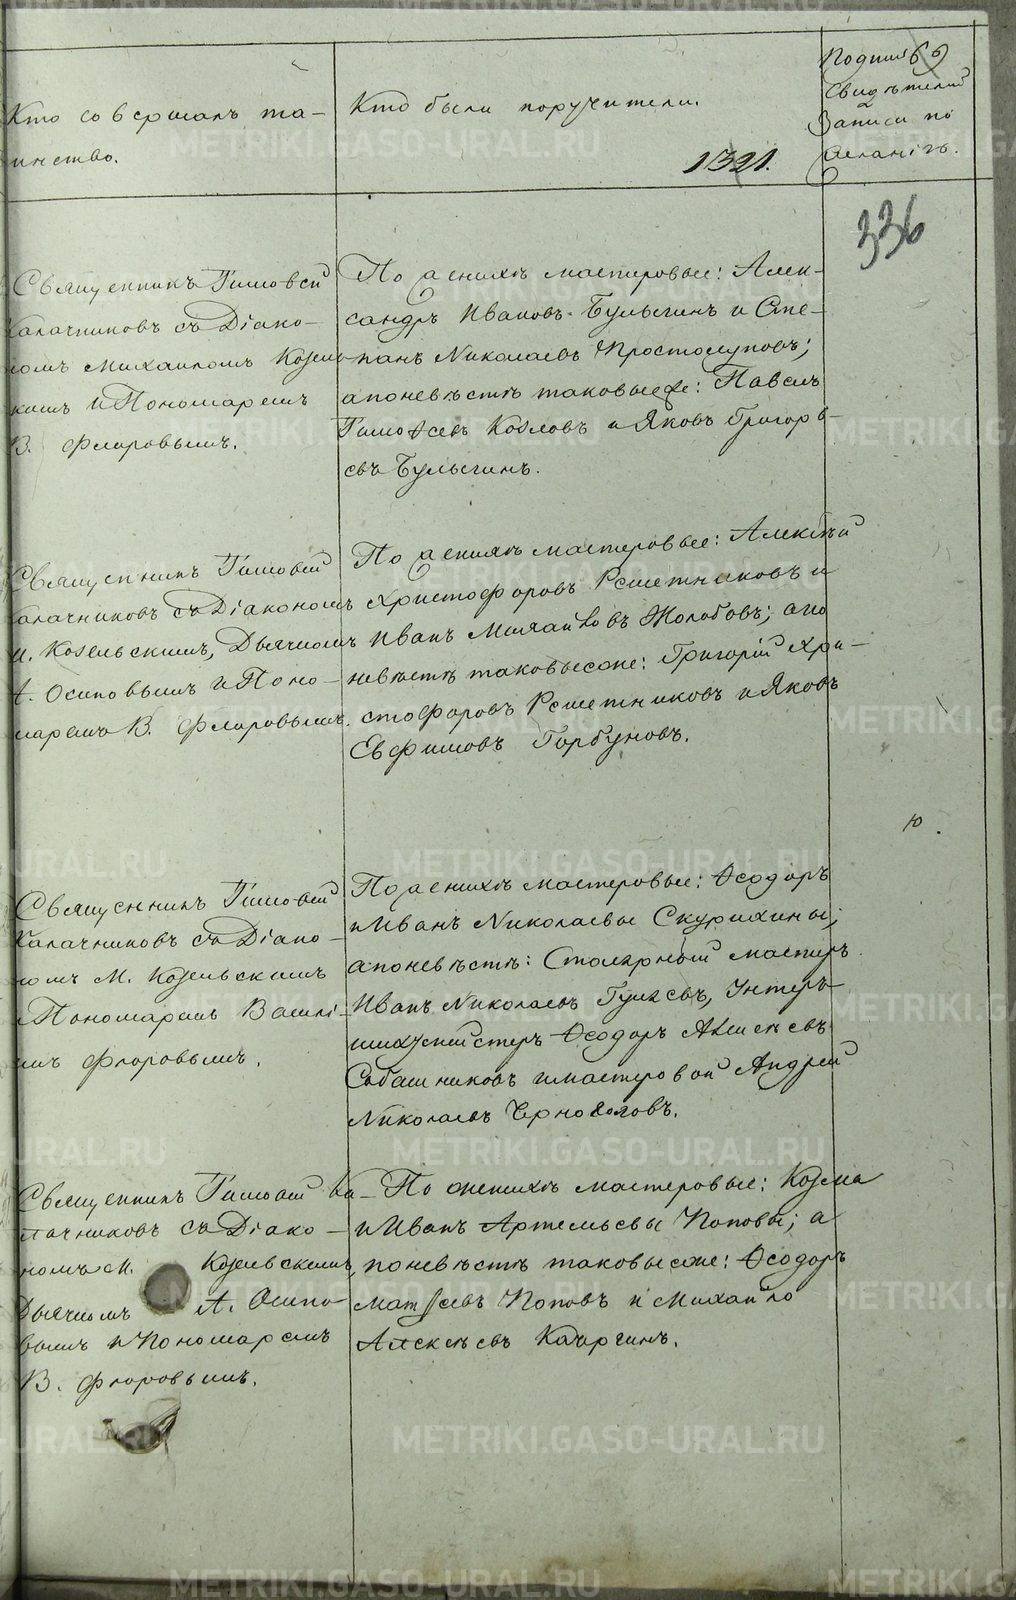 Кто совершалъ та-
инство.
Кто были поручители.
1321.
Подпись
свидѣтелей
записи по
желанiю.
69
336
Священникъ Тимофей
Калачниковъ съ Дiако-
номъ Михаиломъ Козель-
скимъ и Пономаремъ
В. Флоровымъ.
По женихѣ мастеровые: Алек-
сандръ Ивановъ Булыгинъ и Сте-
панъ Николаевъ Простолуповъ;
а по невѣстѣ таковые же: Павелъ
Тимоѳеевъ Козловъ и Яковъ Григорь-
евъ Булыгинъ.
Священникъ Тимофей
Калачниковъ съ Дiакономъ
М. Козельскимъ, Дьячкомъ
А. Осиповымъ и Поно-
маремъ В. Флоровымъ.
По женихѣ мастеровые: Алексѣй
Христофоровъ Решетниковъ и
Иванъ Михайловъ Жолобовъ; а по
невѣстѣ таковые же: Григорiй Хри-
стофоровъ Решетниковъ и Яковъ
Евфимовъ Горбуновъ.
Священникъ Тимофей
Калачниковъ съ Дiако-
номъ М. Козельскимъ
Пономаремъ Василi-
емъ Флоровымъ.
По женихѣ мастеровые: Ѳеодоръ
и Иванъ Николаевы Скурихины;
а по невѣстѣ: Столярный мастеръ
Иванъ Николаевъ Унтеръ-
шихтмейстеръ Ѳеодоръ Алексѣевъ
Собашниковъ и мастеровой Андрей
Николаевъ Черноголовъ.
Священникъ Тимофей Ка-
лачниковъ съ Дiако-
номъ М. Козельскимъ,
Дьячкомъ А. Осипо-
вымъ и Пономаремъ
В. Флоровымъ.
По женихѣ мастеровые: Козма
и Иванъ Артемьевы Поповы; а
по невѣстѣ таковые же: Ѳеодоръ
Матѳеевъ Поповъ и Михайло
Алексѣевъ Качргинъ.
METRIKI.GASO-URAL.RU